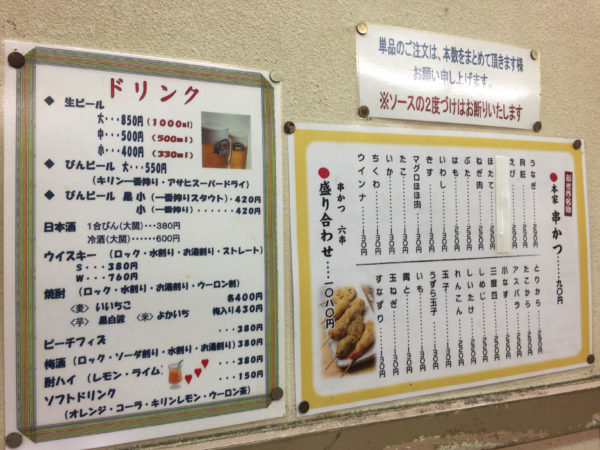 ドリンク
◆ 生ビール
大・・・850円(1000ml)
中・・・500円(500ml)
小・・・400円(330ml)
◆ びんビール 大・・・550円
(キリン一番搾り・アサヒスーパードライ)
◆ びんビール 黒 小(一番搾りスタウト)・420円
小(一番搾り)・・・・・・・420円
日本酒 1合びん(大関)・・・380円
冷酒(大関)・・・・・・600円
ウイスキー (ロック・水割り・お湯割り・ストレート)
S・・・380円
W・・・760円
焼酎 (ロック・水割り・お湯割り・ウーロン割)
〈麦〉いいちこ 各400円
〈芋〉黒白波 〈米〉よかいち 梅入り430円
ピーチフィズ ・・・380円
梅酒(ロック・ソーダ割り・水割り・お湯割り)380円
酎ハイ (レモン・ライム) ・・・380円
ソフトドリンク ・・・150円
(オレンジ・コーラ・キリンレモン・ウーロン茶)
単品のご注文は、本数をまとめて頂きます様
お願い申し上げます。
※ソースの2度づけはお断りいたします
新世界名物
●本家 串かつ・・・・九〇円
うなぎ
貝柱
えび
ほたて
ねぎ肉
ぶた
はも
いわし
きす
マグロほほ肉
たこ
いか
ちくわ
ウインナ
とりから
たこから
アスパラ
小なす
三度豆
しめじ
しいたけ
れんこん
玉子
うずら玉子
いも
青と
玉ねぎ
すなずり
串かつ 六串
●盛り合わせ・・・・一〇八〇円